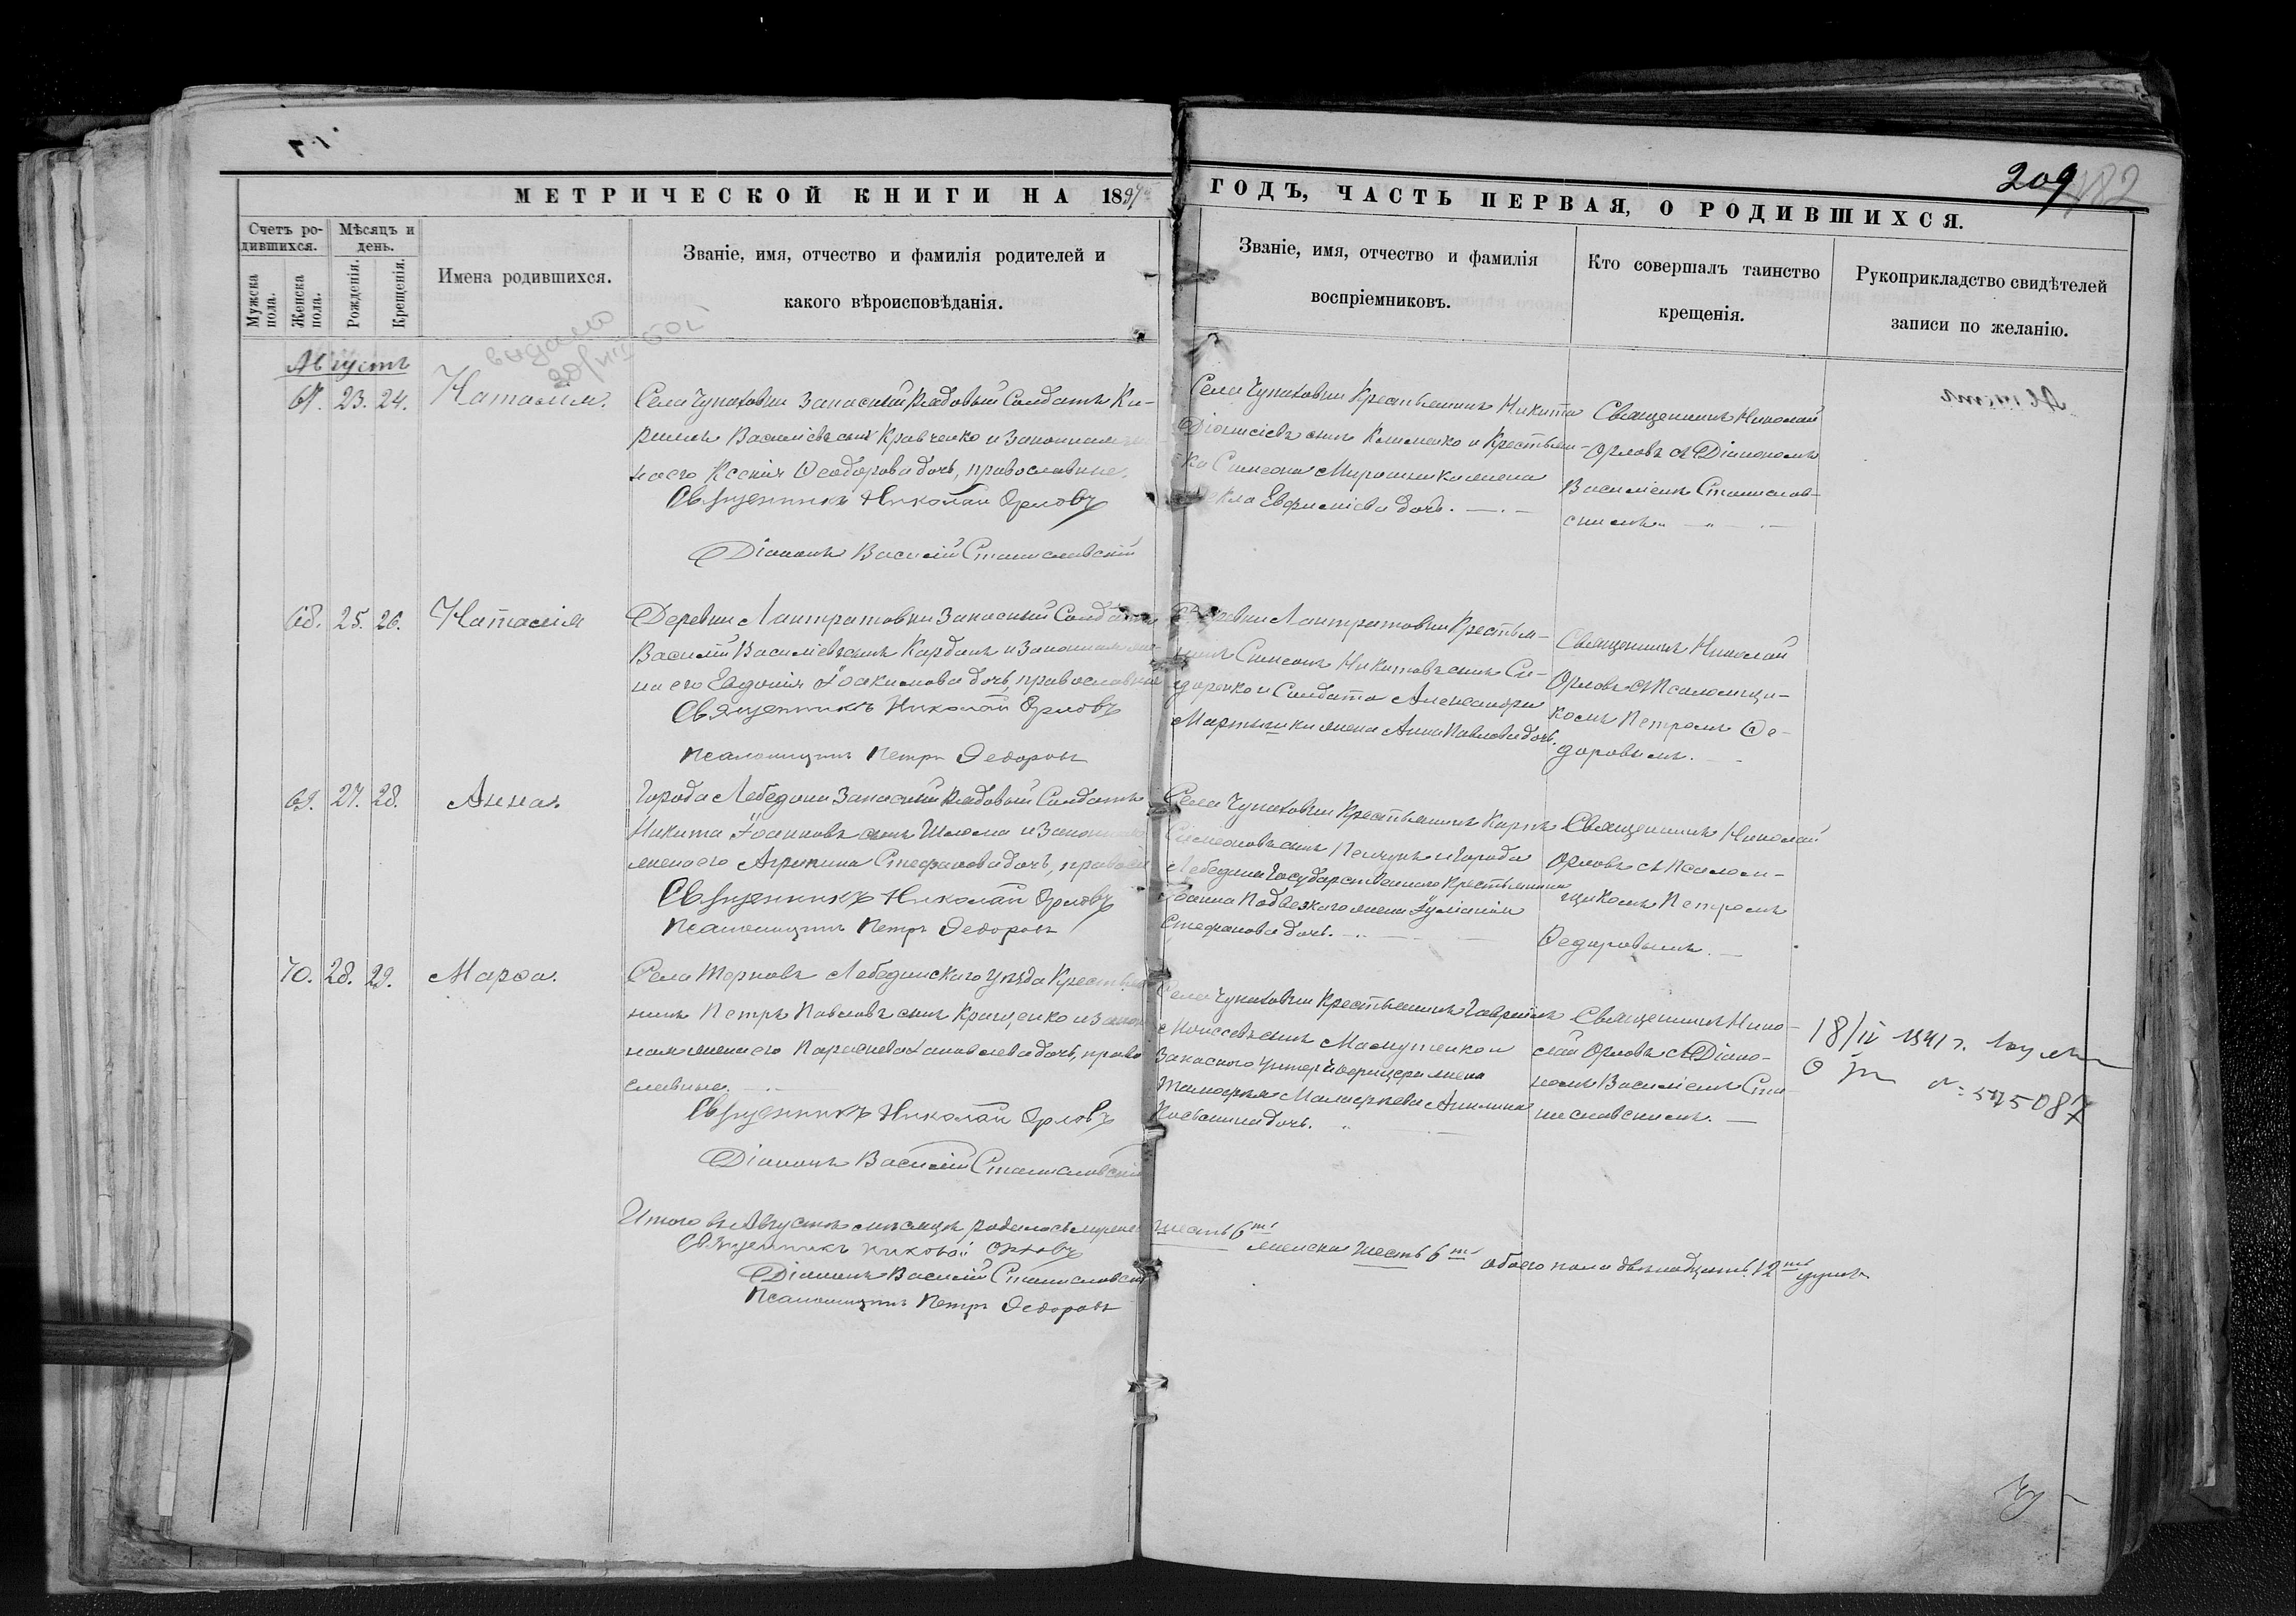 209
182
МЕТРИЧЕСКОЙ КНИГИ НА 1897
ГОДЪ, ЧАСТЬ ПЕРВАЯ, О РОДИВШИХСЯ.
Счетъ ро-
дившихся.
Мужска
пола.
Женска
пола.
Мѣсяцъ и
день.
Рожденія.
Крещенія.
Имена родившихся.
Званіе, имя, отчество и фамилія родителей и
какого вѣроисповѣданія.
Званіе, имя, отчество и фамилія
воспріемниковъ.
Кто совершалъ таинство
крещенія.
Рукоприкладство свидѣтелей
записи по желанію.
выдано
Августъ
67. 23. 24. Наталія.
Села Чупаховки Запасный Рядовый Солдатъ Ки-
риллъ Василіевъ сынъ Кравченко и законная
его Ксенія Ѳеодорова дочь, православные.
Священникъ Николай Орловъ
Діаконъ Василій Станиславскій
Села Чупаховки Крестьянинъ Никита
Діонисіевъ сынъ Клименко и Крестьян-
ка Симеона Мирошника жена
Ѳекла Евфиміева дочь.
Священникъ Николай
Орловъ съ Діакономъ
Василіемъ Станислав-
скимъ.
68. 25. 26. Наталія
Деревни Лантратовки Запасный Солдатъ
Василій Василіевъ сынъ Карданъ и законная же-
на его Евдокія Іоакимова дочь, православные
Священникъ Николай Орловъ
Псаломщикъ Петръ Ѳедоровъ
Деревни Лантратовки Крестья-
нинъ Симеонъ Никитовъ сынъ Си-
доренко и Солдата Александра
жена Анна Павлова дочь.
Священникъ Николай
Орловъ съ Псаломщи-
комъ Петромъ Ѳе-
доровымъ.
69. 27. 28. Анна.
Города Лебедина Запасный Рядовый Солдатъ
Никита Іоанновъ сынъ Шилома и законная
жена его Агрипина Стефанова дочь, правосл
Священникъ Николай Орловъ
Псаломщикъ Петръ Ѳедоровъ
Села Чупаховки Крестьянинъ Карпъ
Симеоновъ сынъ и города
Лебедина Государственнаго Крестьянина
Іоанна жена Іуліанія
Стефанова дочь.
Священникъ Николай
Орловъ съ Псалом-
щикомъ Петромъ
Ѳедоровымъ.
70. 28. 29. Марѳа.
Села Терновъ Лебединскаго уѣзда Крестья
нинъ Петръ Павловъ сынъ Крищенко и закон
ная жена его Параскева Іаковлева дочь, право
славные.
Священникъ Николай Орловъ
Діаконъ Василій Станиславскій
Села Чупаховки Крестьянинъ Гавріилъ
Моисеевъ сынъ и
Запаснаго Унтеръ Офицера жена
дочь.
Священникъ Нико-
лай Орловъ съ Діако-
номъ Василіемъ Ста
ниславскимъ.
18/IV 1941 г.
№ 545087
Итого въ Августѣ мѣсяцѣ родилось мужска шесть 6ть
женска шесть 6ть обоего пола двѣнадцать 12ть душъ
Священникъ Николай Орловъ
Діаконъ Василій Станиславскій
Псаломщикъ Петръ Ѳедоровъ